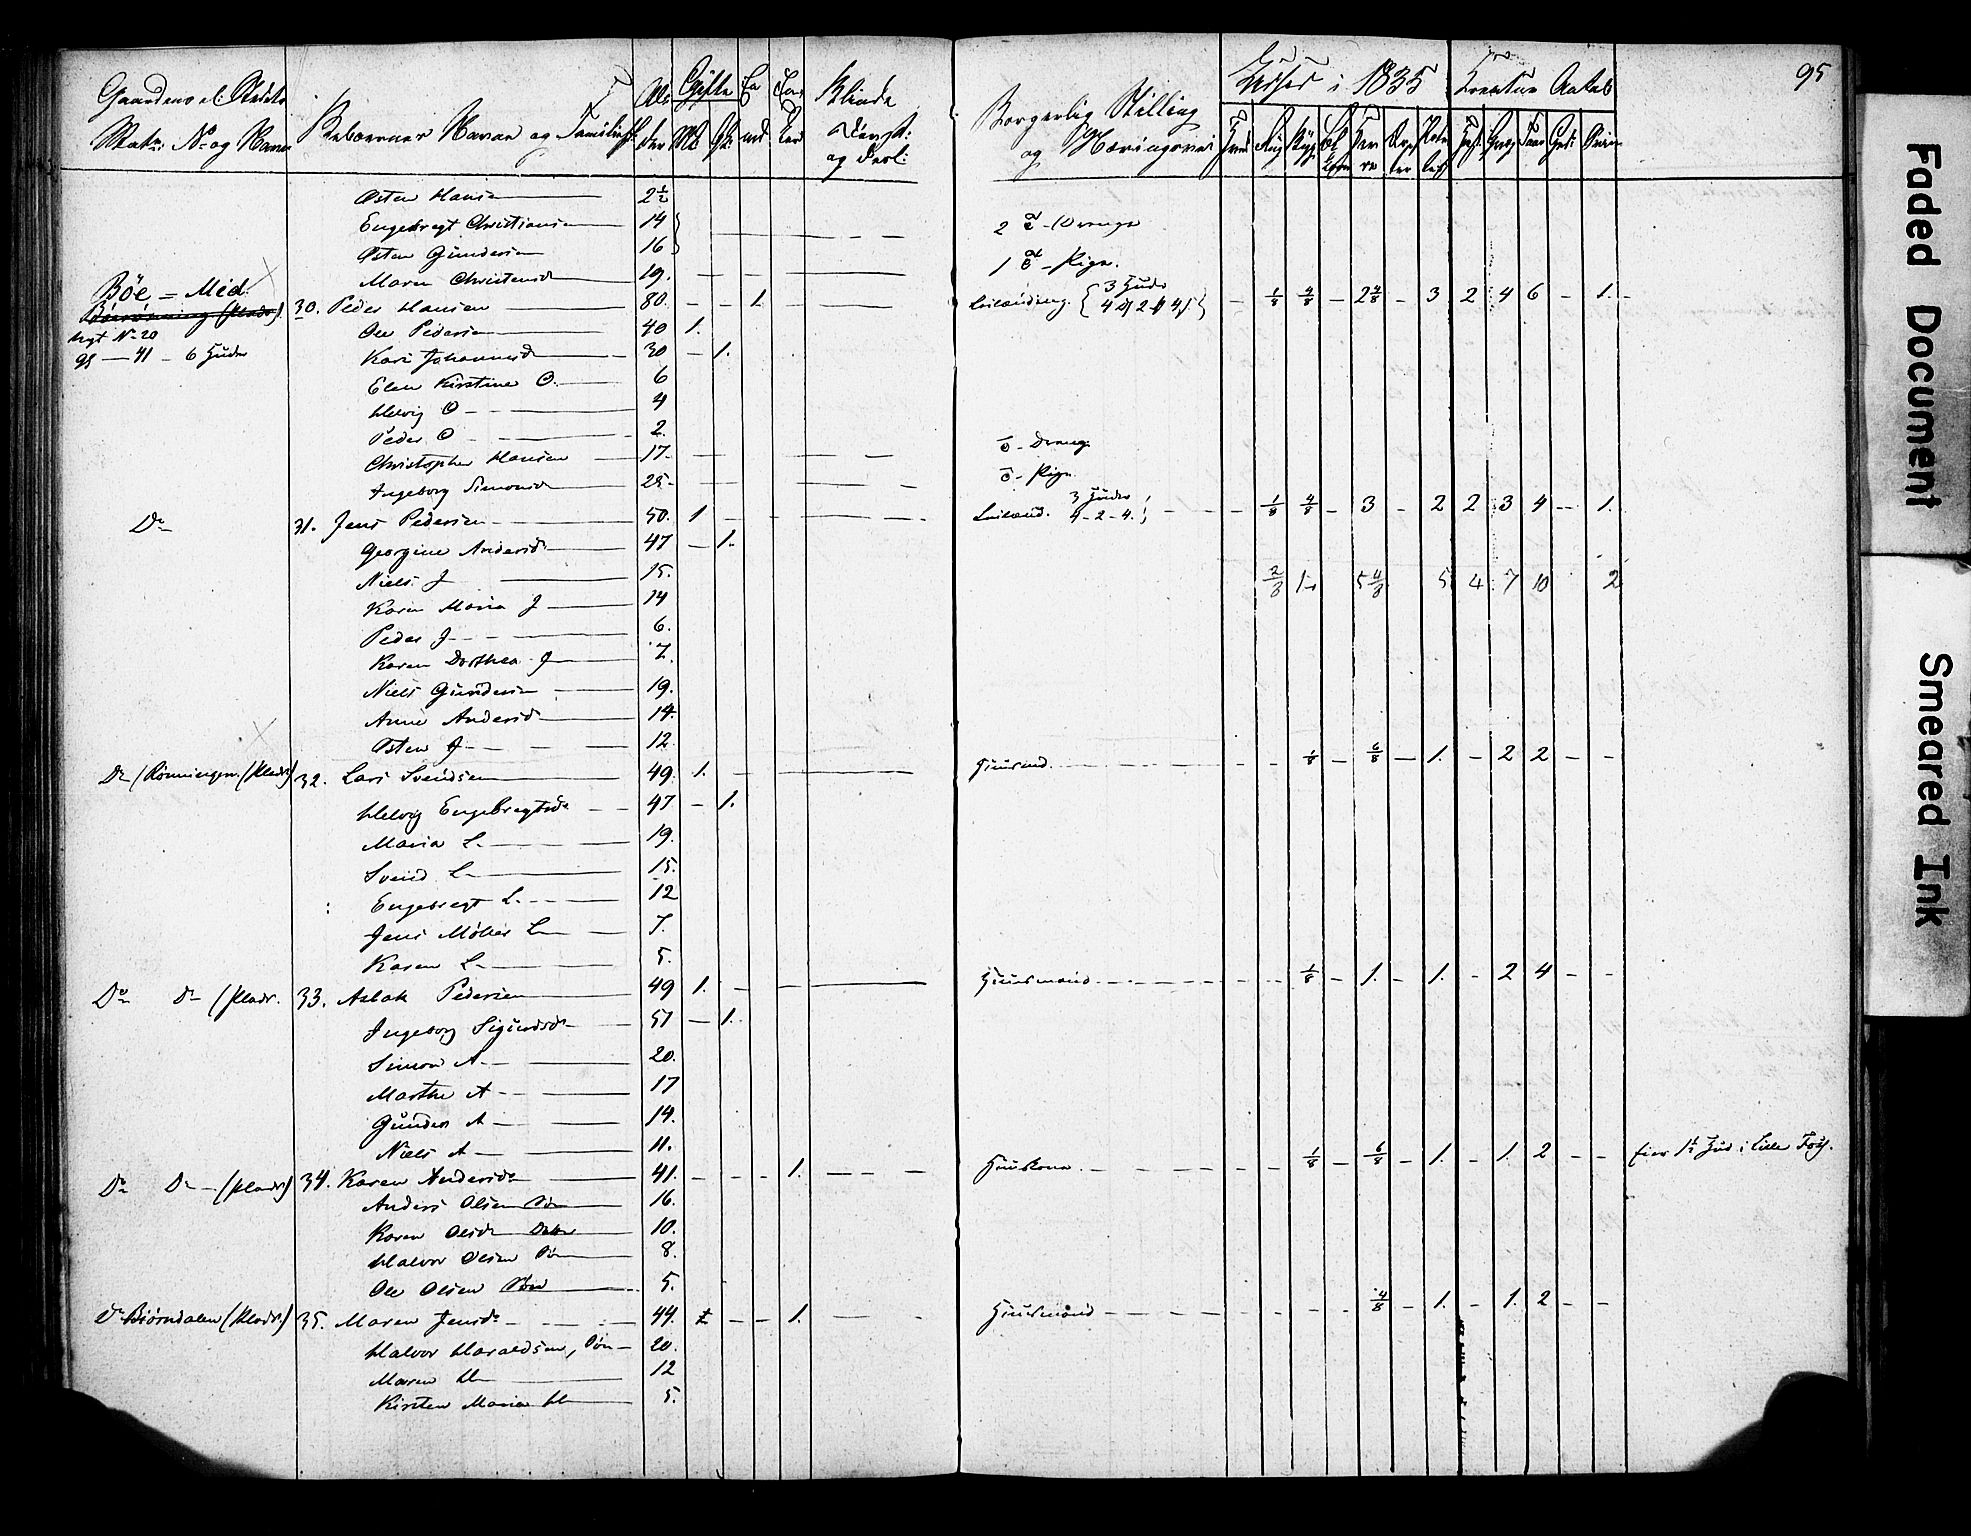 95
Gaardens el: Stedets
Matr: No og Navn
Beboernes Navne og Familie
Alder
Gifte
Mk Qk
Blinde
Døvst:
og Dæl:
Borgerlig Stilling
og Næringsvei
Udsæd i 1835
Creatur Antal
Osten Hansen 2½
Engebregt Christiansen 14
Osten Gundersen 16
2 Drenge
Maren Christensd 19.
1 Pige.
Böe = Mid
30. Peder Hansen 80. 1.
Leilænding. 3 Huder
1/8 4/8 2 4/8 3 2 4 6 1.
Ole Pedersen 40 1.
No 20
95 — 41 - 6 Huder
Kari Johannesd 30 1.
Elen Kirstine O. 6
Helvig O 4
Peder O 2.
Christopher Hansen 17.
Dreng
Ingeborg Simonsd 25.
Pige
Do 31. Jens Pedersen 50. 1
Leilænd. 3 Huder
4-2-4.
1/8 4/8 3 2 2 3 4 1.
Georgine Andersd 47 1.
Niels J 15.
2/8 1 5 4/8 5 4 7 10 2
Karen Maria J 14
Peder J 6.
Karen Dorthea J 7.
Niels Gundersen 19.
Anne Andersd 14.
Osten J 12
Do (Rønningen. (Pladr) 32. Lars Svendsen 49. 1.
Huusmd. 1/8 6/8 1. 2 2
Helvig Engebregtsdr 47 1.
Maria L. 19.
Svend L 15.
Engebregt L. 12
Jens Möller L 7.
Karen L 5.
Do Do (Pladr. 33. Aslak Pedersen 49 1.
Huusmand 1/8 1. 1. 2 4
Ingeborg Sigurdsdr 51 1.
Simon A 20.
Marthe A 17
Gunder A 14.
Niels A 11.
Do Do (Pladr) 34. Karen Andersdr 41. 1.
Huuskone. 1/8 6/8 1. 1. 2
eier 1t Hus i Lille
Anders Olsen Søn 16.
Karen Olsdr Dattr 10.
Halvor Olsen Søn 8.
Ole Olsen Søn 5.
Do Biørndalen (Pladr) 35. Maren Jensdr 44. 1.
Huusmand 4/8 1. 1. 2
Halvor Haraldsen, Søn 20.
Maren H 12
Kirsten Maria H 5.
Faded Document
Smeared Ink